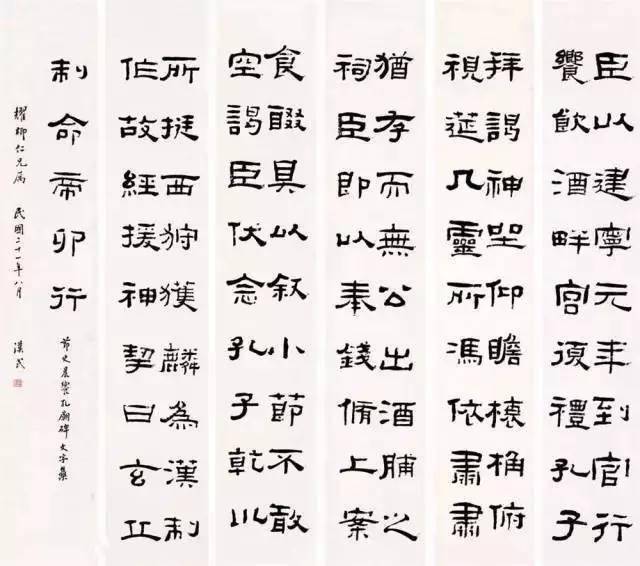 臣以建寧元年到官行
饗飲酒畔宮復禮孔子
拜謁神坐仰瞻榱桷俯
視莚几靈所馮依肅肅
猶存而無公出酒脯之
祠臣即以奉錢脩上案
食醊具以叙小節不敢
空謁臣伏念孔子乾巛
所挺西狩獲麟為漢制
作故經援神挈曰玄丘
制命帝卯行
節史晨饗孔廟碑文字集
耀卿仁兄屬 民國二十一年八月 漢民